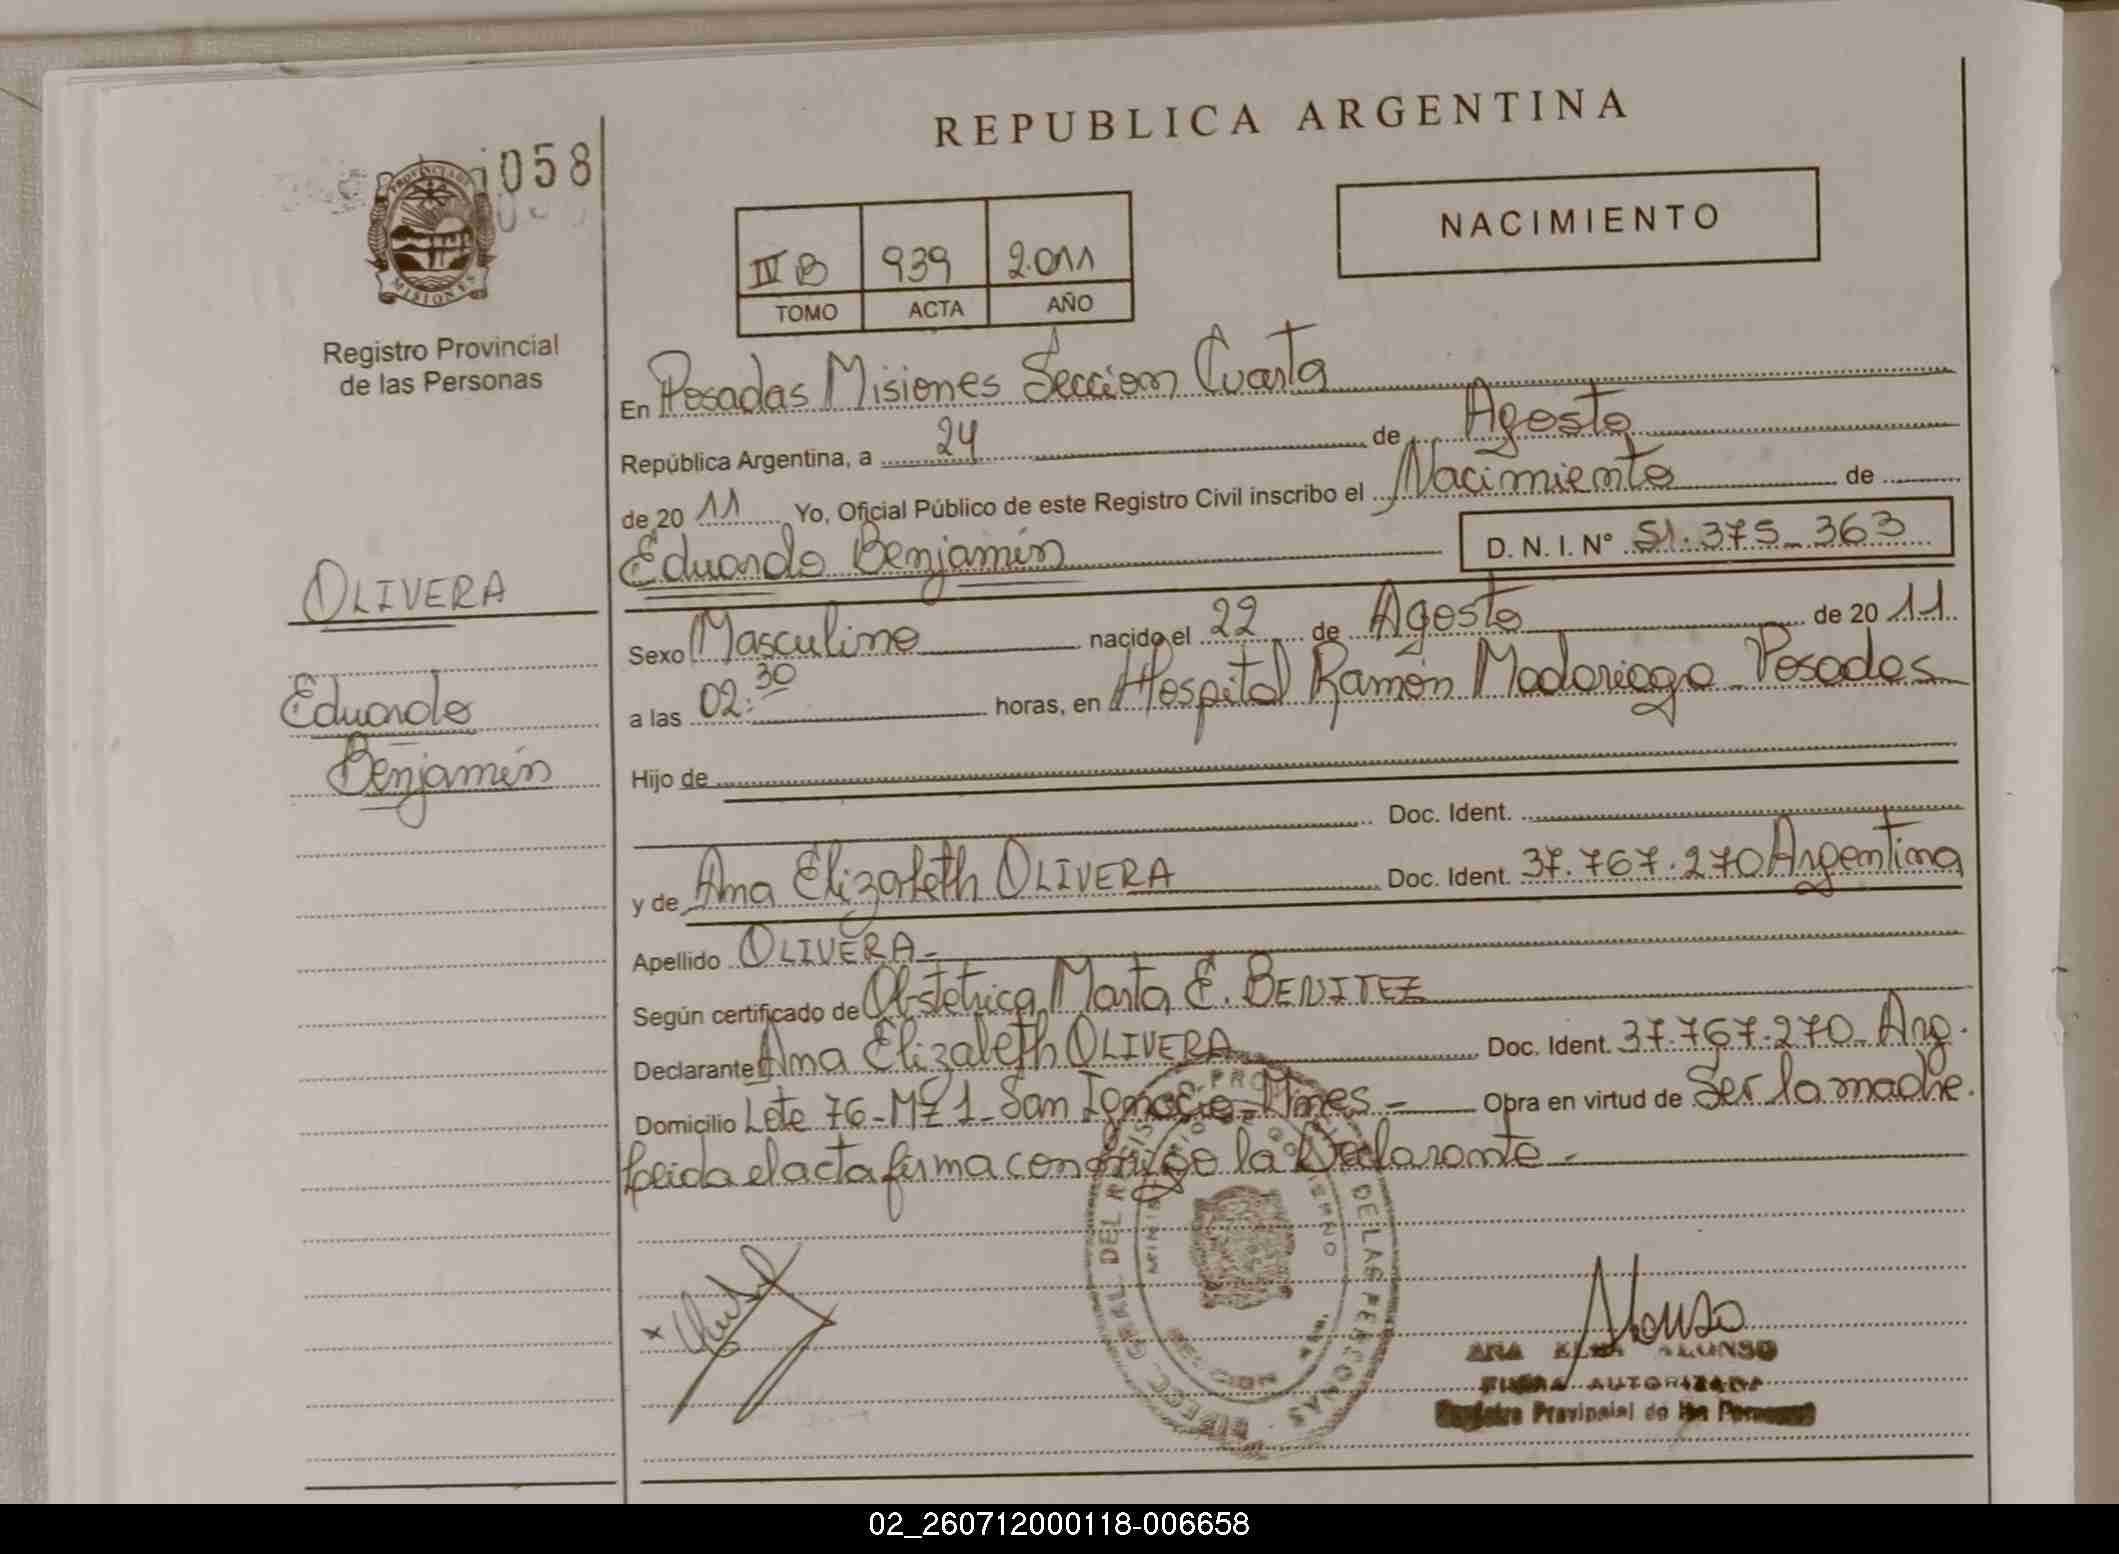 REPUBLICA ARGENTINA
058
PROVINCIA DE
MISIONES
Registro Provincial
de las Personas
NACIMIENTO
III B 939 2.011
TOMO ACTA AÑO
En Posadas Misiones Seccion Cuarta
República Argentina, a 24 de Agosto
de 20 11 Yo, Oficial Público de este Registro Civil inscribo el Nacimiento de
Eduardo Benjamín D. N. I. N° 51.375_363
OLIVERA
Eduardo
Benjamín
Sexo Masculino nacido el 22 de Agosto de 20 11.
a las 02:30 horas, en Hospital Ramón Madariaga_Posadas
Hijo de
Doc. Ident.
y de Ana Elizabeth OLIVERA Doc. Ident. 37.767.270 Argentina
Apellido OLIVERA-
Según certificado de Obstetrica Marta E. BENITEZ
Declarante Ana Elizabeth OLIVERA Doc. Ident. 37.767.270_Arg.
Domicilio Lote 76-MZ 1-San Ignacio-Mnes- Obra en virtud de Ser la madre.
leida el acta firma conmigo la Declarante-
x
DIRECC. GRAL. DEL REGISTRO PROVINCIAL DE LAS PERSONAS
MINISTERIO DE GOBIERNO
Alonso
ANA ALONSO
FIRMA AUTORIZADA
Registro Provincial de las Personas
02_260712000118-006658